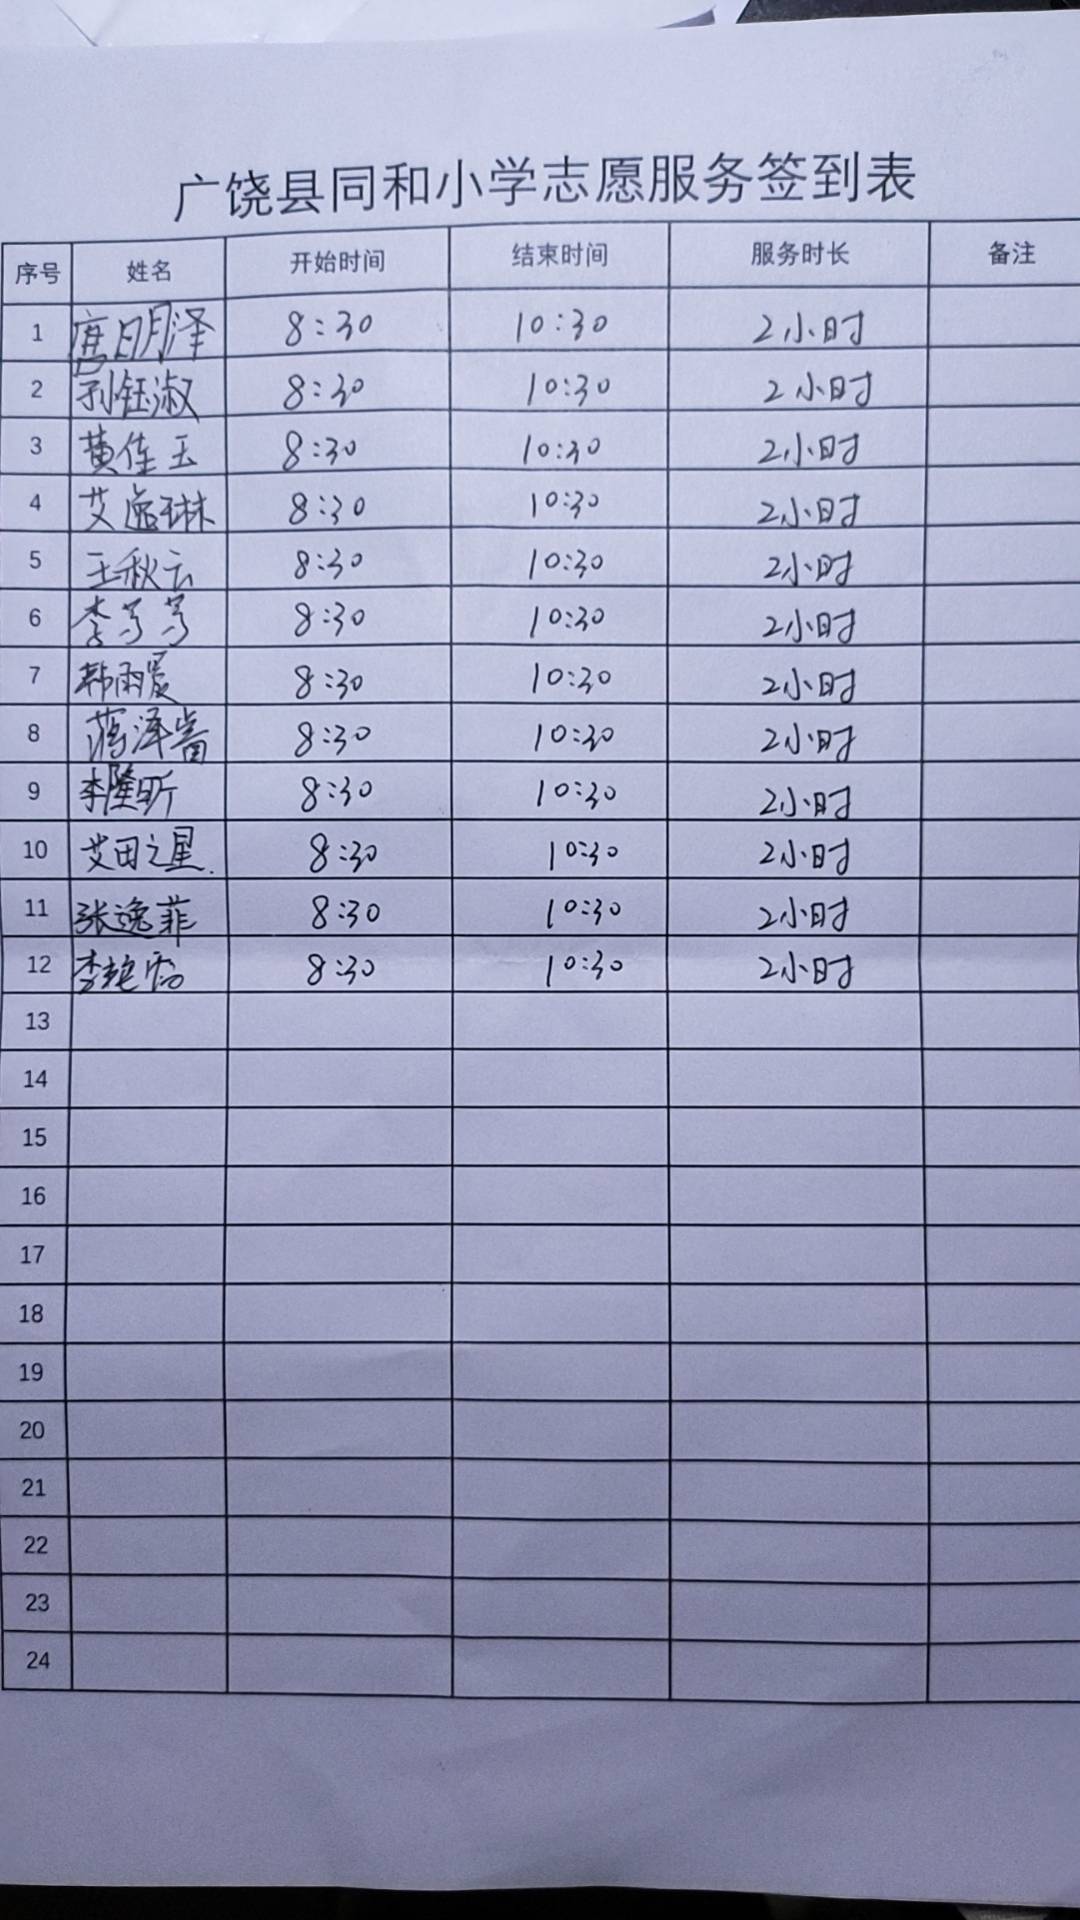 广饶县同和小学志愿服务签到表
序号 姓名 开始时间 结束时间 服务时长 备注
1 唐明泽 8:30 10:30 2小时
2 孙钰淑 8:30 10:30 2小时
3 黄佳玉 8:30 10:30 2小时
4 艾逸琳 8:30 10:30 2小时
5 王秋云 8:30 10:30 2小时
6 8:30 10:30 2小时
7 韩雨爰 8:30 10:30 2小时
8 8:30 10:30 2小时
9 李隆昕 8:30 10:30 2小时
10 艾田之星. 8:30 10:30 2小时
11 张逸菲 8:30 10:30 2小时
12 8:30 10:30 2小时
13
14
15
16
17
18
19
20
21
22
23
24